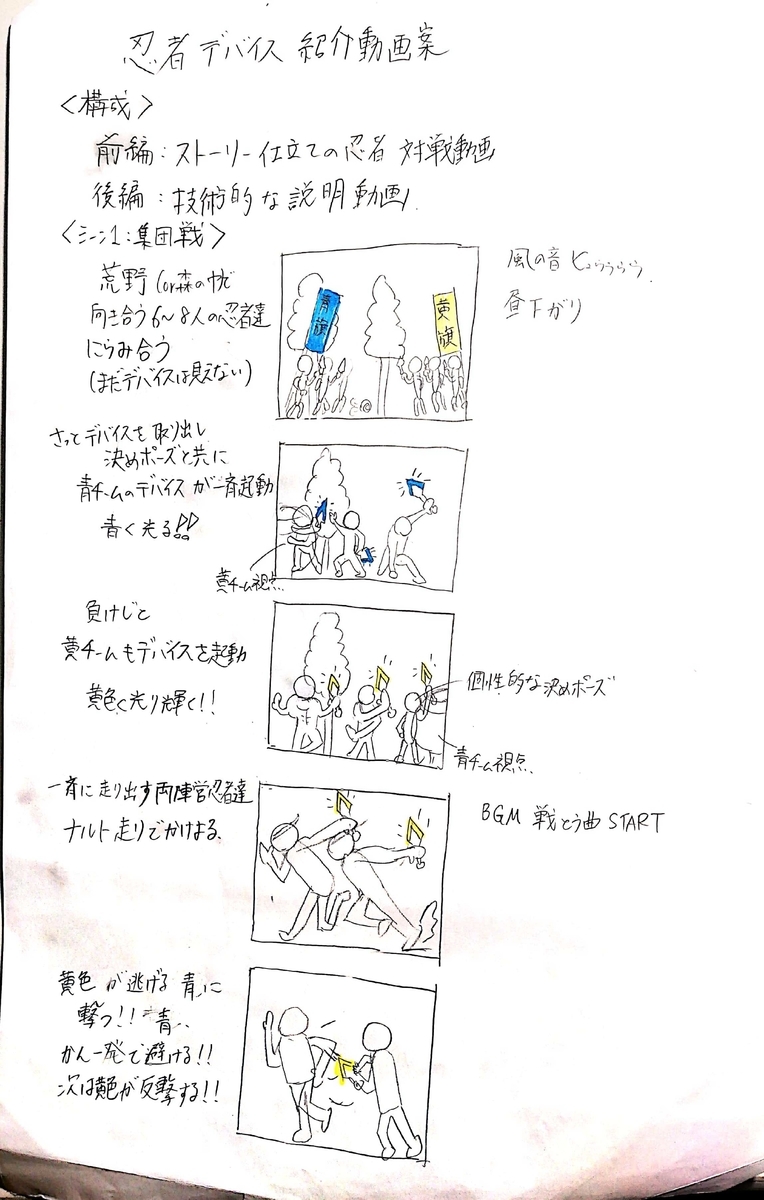 忍者デバイス 紹介動画案
<構成>
前編:ストーリー仕立ての忍者 対戦動画
後編:技術的な説明動画
<シーン1:集団戦>
荒野 (or森の中で
向き合う6〜8人の忍者達
にらみ合う
(まだデバイスは見えない)
青旗
黄旗
風の音 ヒュゥゥゥゥ
昼下がり
さってデバイスを取り出し
決めポーズと共に
青チームのデバイスが一斉起動
青く光る!!
黄チーム視点
負けじと
黄チームもデバイスを起動
黄色く光り輝く!!
個性的な決めポーズ
青チーム視点
一斉に走り出す両陣営忍者達
ナルト走りでかけよる
BGM 戦とう曲 START
黄色が逃げる青に
撃つ!! 青、
かん一発で避ける!!
次は黄色が反撃する!!